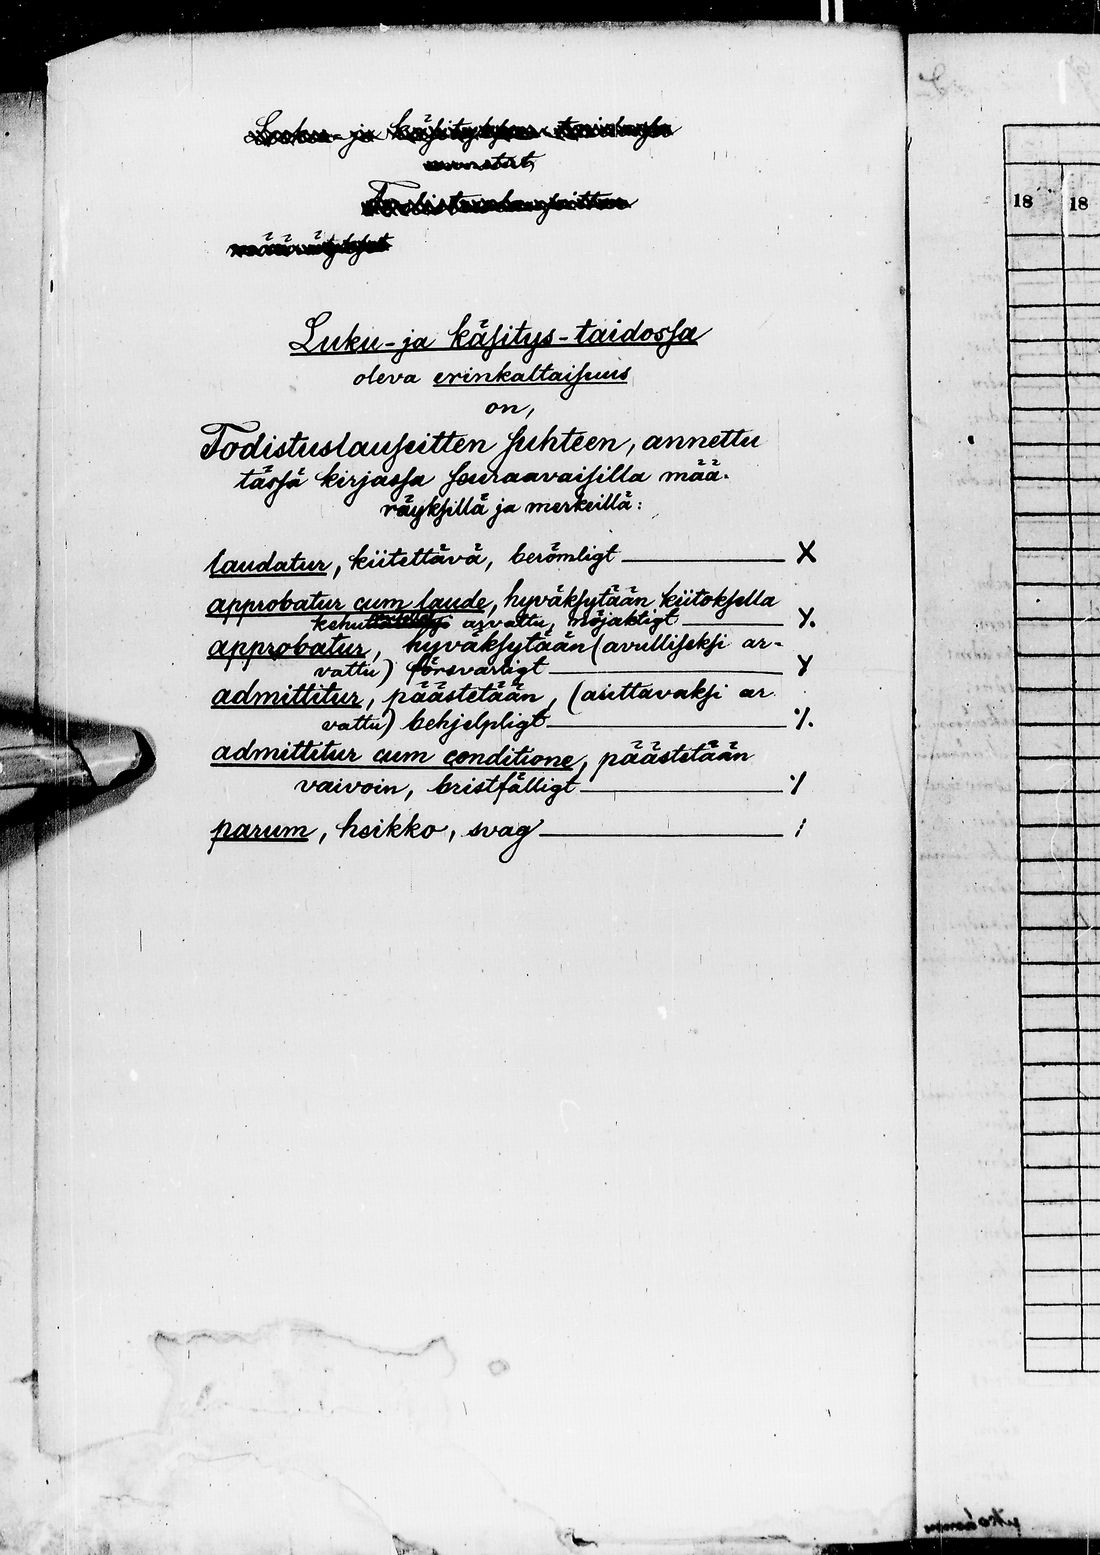 Luku-ja käsitys-taidossa
oleva erinkaltaisuus
on,
Todistuslauseitten suhteen, annettu
tässä kirjassa seuraavaisilla mää-
räyksillä ja merkeillä:
laudatur, kiitettävä, berömligt X
approbatur cum laude, hyväksytään kiitoksella
arvattu, nöjaktigt Y.
approbatur, hyväksytään (avulliseksi ar-
vattu) försvarligt Y
admittitur, päästetään, (autettavaksi ar
vattu) behjelpligt ⁒.
admittitur cum conditione, päästetään
vaivoin, bristfälligt ⁒
parum, heikko, svag /
18 18